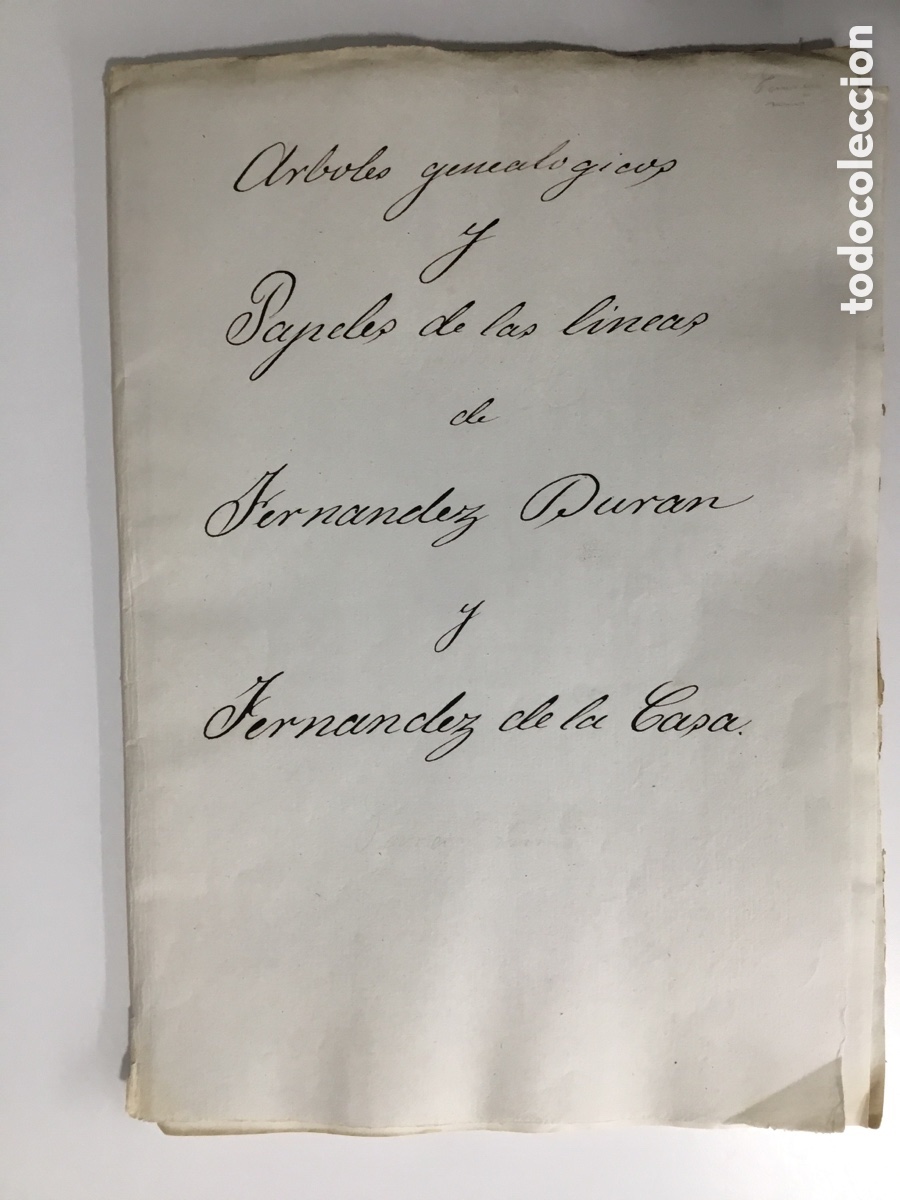 Arboles genealogicos
y
Papeles de las lineas
de
Fernandez Duran
y
Fernandez de la Casa.
todocoleccion